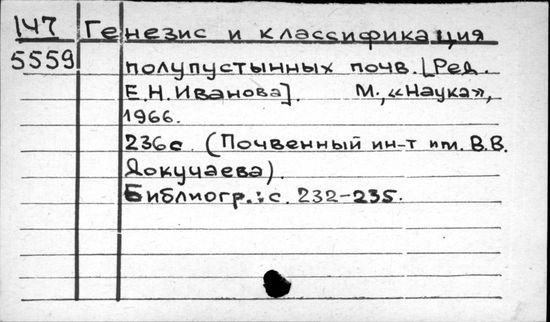 147 Генезис и классификация
5559 полупустынных почв. [Ред.
Е.Н.Иванова]. М., «Наука»,
1966.
236с. (Почвенный ин-т им. В.В.
Докучаева).
Библиогр.: с. 232-235.